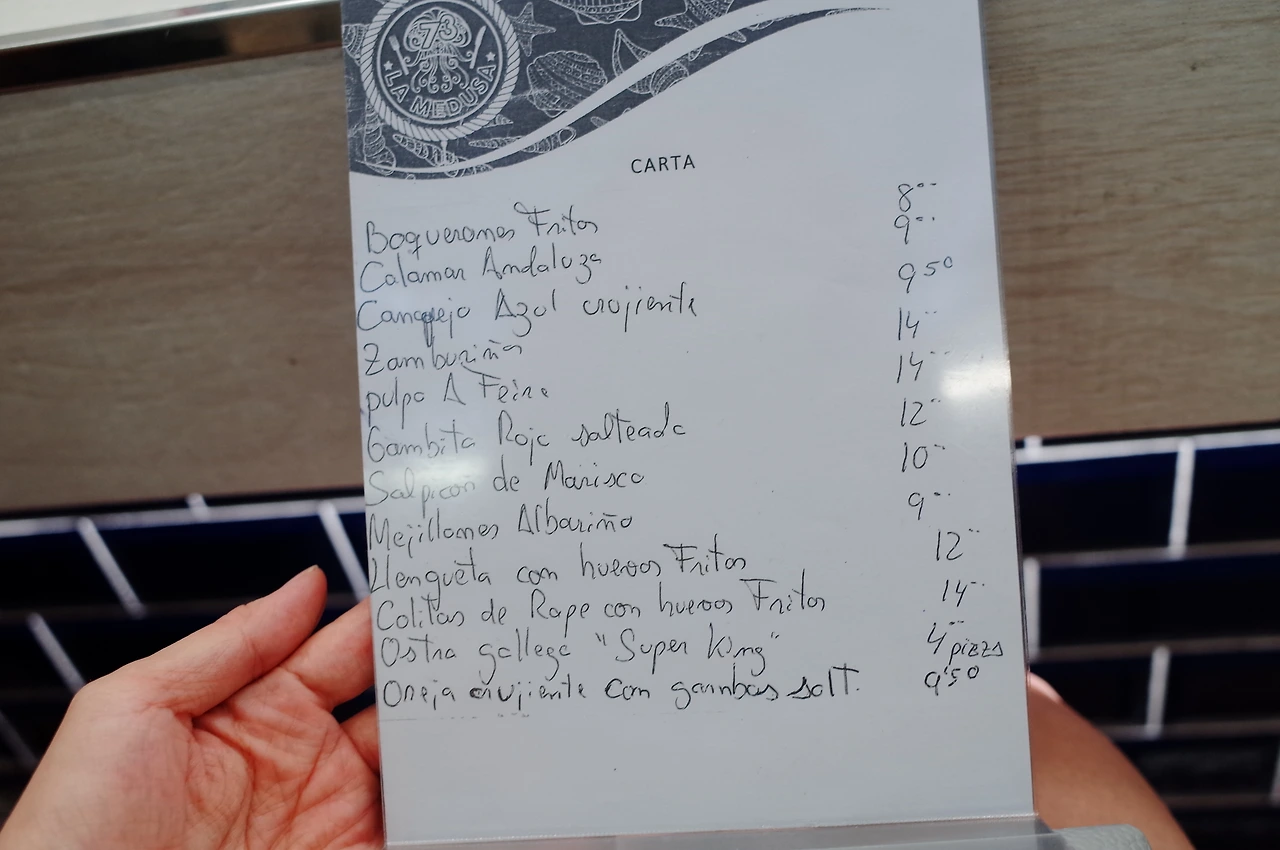 73
LA MEDUSA
CARTA
Boquerones Fritos 8--
Calamar Andaluza 9--
Cangrejo Azul crujiente 9 50
Zamburiña 14--
pulpo A Feira 14--
Gambita Roja salteada 12--
Salpicon de Marisco 10--
Mejillones Albariño 9--
Llengueta con huevos Fritos 12--
Colitas de Rape con huevos Fritos 14--
Ostra gallega "Super King" 4-- pieza
Oreja crujiente con gambas salt. 9'50